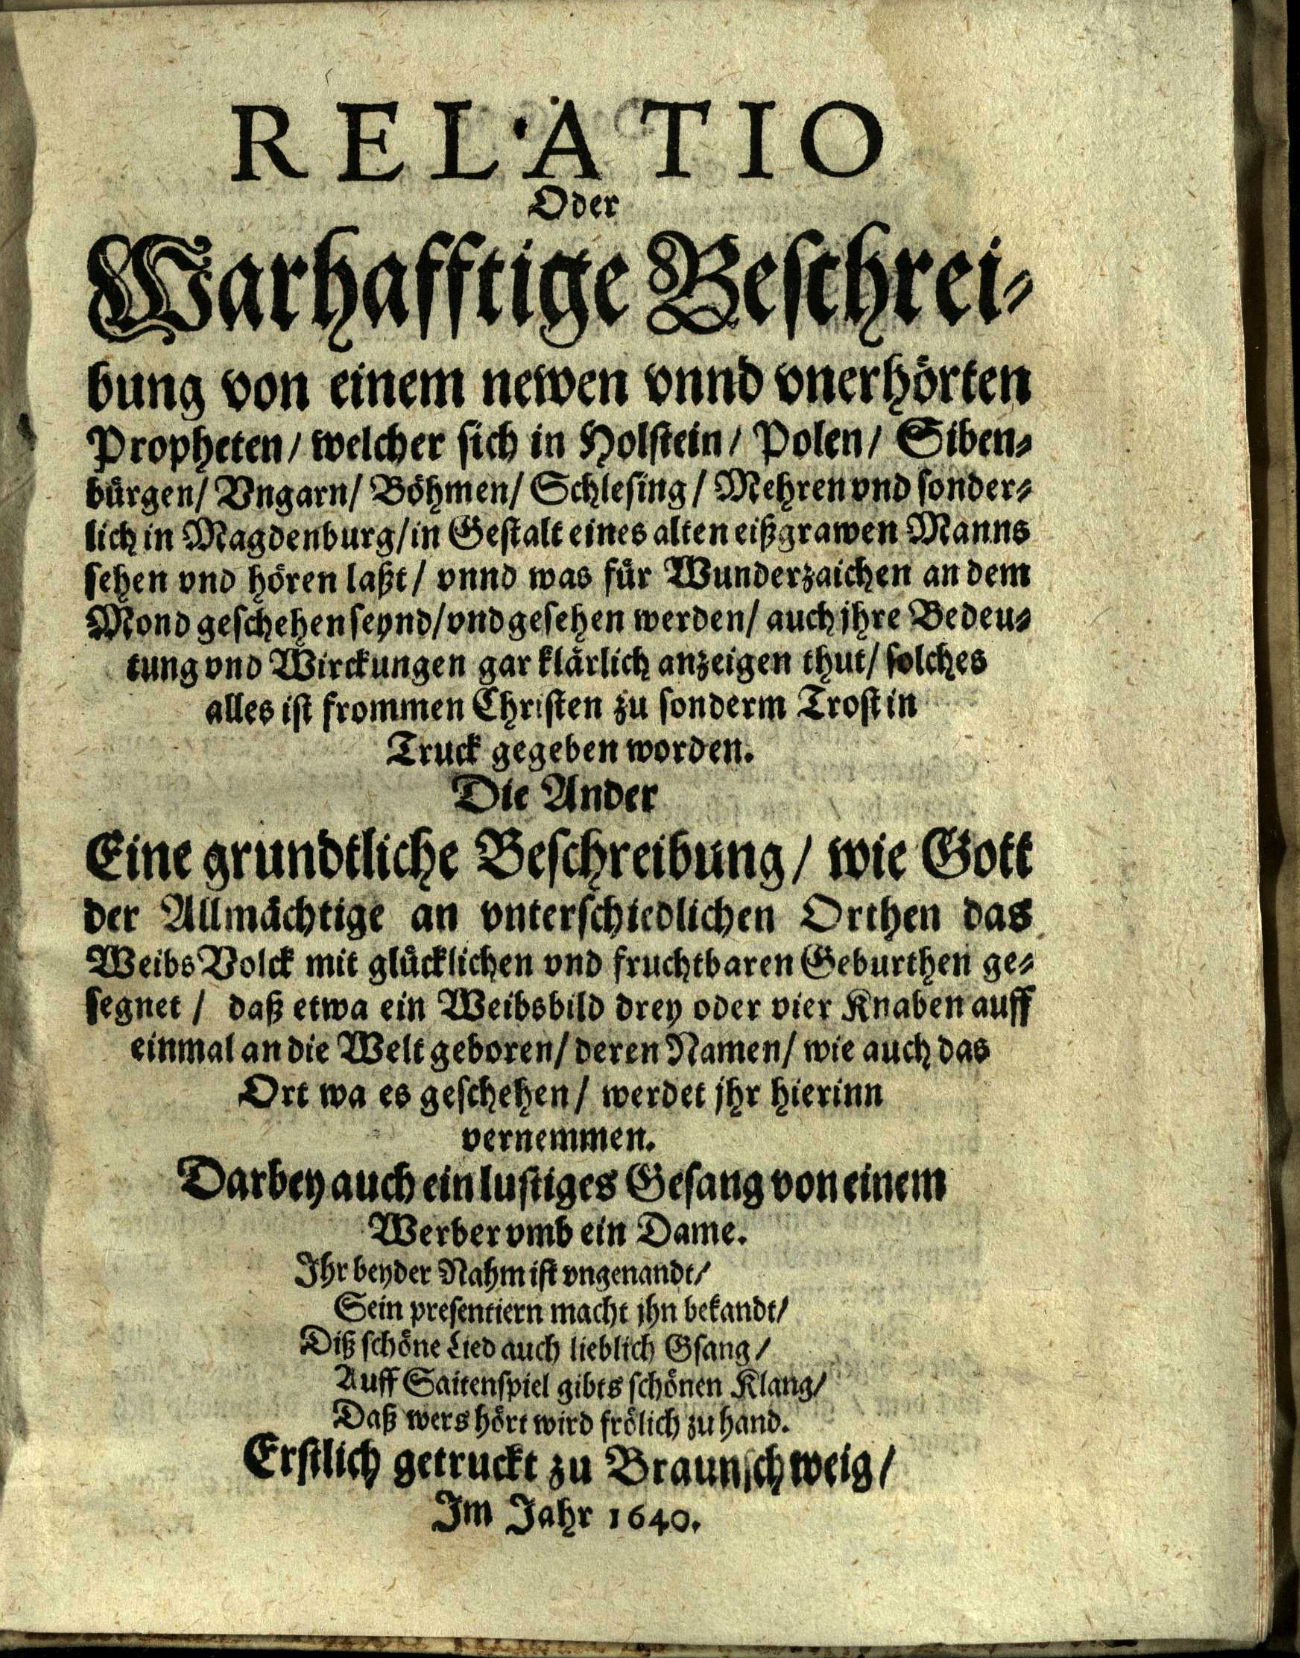 RELATIO
Oder
Warhafftige Beschrei-
bung von einem newen vnnd vnerhörten
Propheten/ welcher sich in Holstein/ Polen/ Siben-
bürgen/ Vngarn/ Böhmen/ Schlesing/ Mehren vnd sonder-
lich in Magdenburg/ in Gestalt eines alten eißgrawen Manns
sehen vnd hören laßt/ vnnd was für Wunderzaichen an dem
Mond geschehen seynd/ vnd gesehen werden/ auch jhre Bedeu-
tung vnd Wirckungen gar klärlich anzeigen thut/ solches
alles ist frommen Christen zu sonderm Trost in
Truck gegeben worden.
Die Ander
Eine grundtliche Beschreibung/ wie Gott
der Allmächtige an vnterschiedlichen Orthen das
Weibs Volck mit glücklichen vnd fruchtbaren Geburthen ge-
segnet/ daß etwa ein Weibsbild drey oder vier Knaben auff
einmal an die Welt geboren/ deren Namen/ wie auch das
Ort wa es geschehen/ werdet jhr hierinn
vernemmen.
Darbey auch ein lustiges Gesang von einem
Werber vmb ein Dame.
Ihr beyder Nahm ist vngenandt/
Sein presentiern macht jhn bekandt/
Diß schöne Lied auch lieblich Gsang/
Auff Saitenspiel gibts schönen Klang/
Daß wers hört wird frölich zu hand.
Erstlich getruckt zu Braunschweig/
Im Jahr 1640.